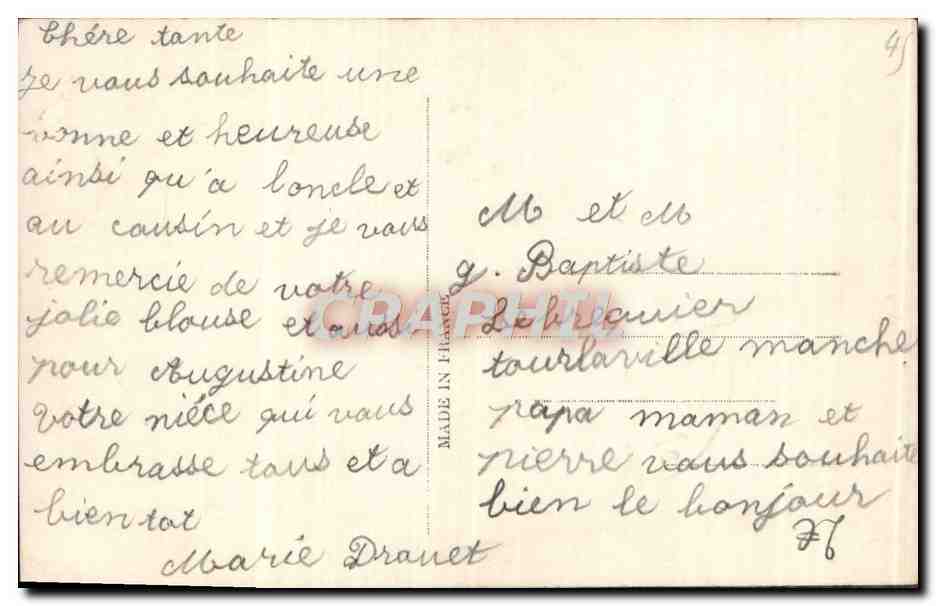 Chére tante
je vous souhaite une
bonne et heureuse
ainsi qu'a loncle et
au cousin et je vous
remercie de votre
jolie blouse et aussi
pour Augustine
votre niéce qui vous
embrasse tous et a
bien tot
Marie Drouet
MADE IN FRANCE
CRAPHIL
45
M et M
g. Baptiste
Lebreauier
tourlaville manche
papa maman et
pierre vous souhaite
bien le bonjour